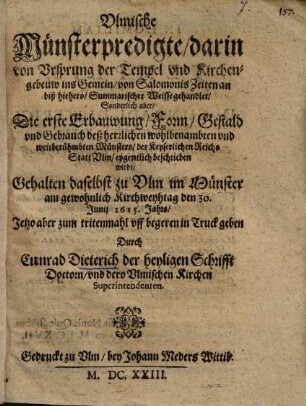 Vlmische
Münsterpredigte/ darin
von Vrsprung der Tempel vnd Kirchen-
gebeuw ins Gemein/ von Salomonis Zeiten an
biß hiehero/ Summarischer Weiß gehandlet/
Sonderlich aber/
Die erste Erbauwung/ Form/ Gestald
vnd Gebrauch deß herzlichen wohlbenambten vnd
weitberühmbten Münsters/ der Keyserlichen Reichs
Statt Vlm/ eygentlich beschrieben
wirdt/
Gehalten daselbst zu Vlm im Münster
am gewohnlich Kirchweyhtag den 30.
Junij 1615. Jahrs/
Jetzo aber zum trittenmahl vff begeren in Truck geben
Durch
Cunrad Dieterich der heyligen Schrifft
Doctorn/ vnd dero Vlmischen Kirchen
Superintendenten.
Gedruckt zu Vlm/ bey Johann Meders Wittib.
M. DC. XXIII.